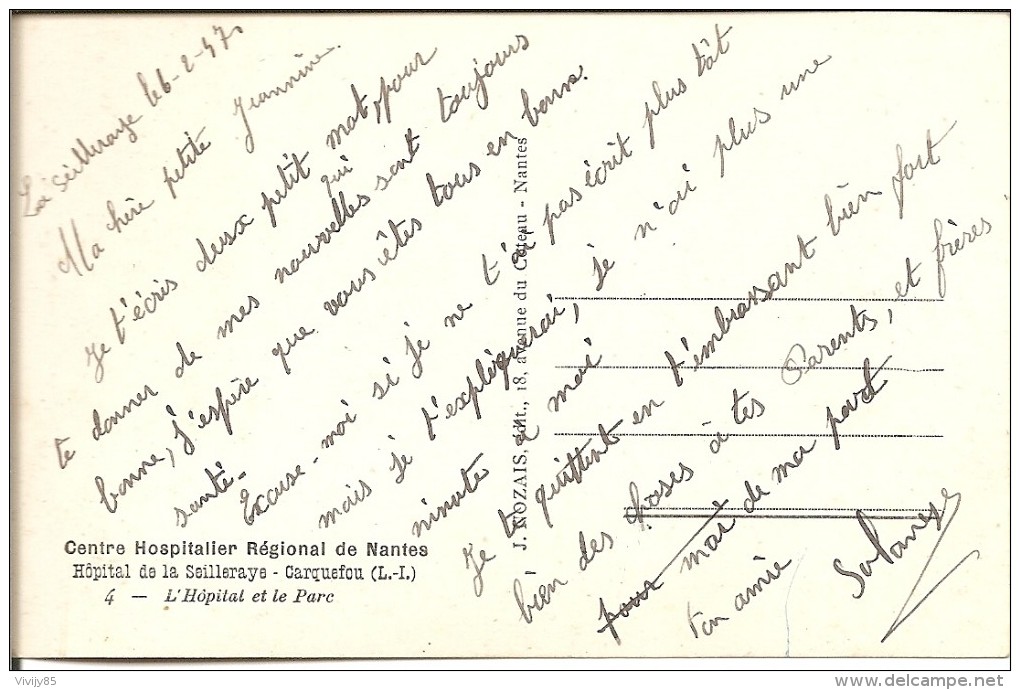 La Seilleraye le 6-2-47
Ma chère petite Jeannine.
Je t'écris deux petit mot, pour
te donner de mes nouvelles qui sont toujours
bonne, j'espère que vous êtes tous en bonne
santé.
Excuse-moi si je ne t'ai pas écrit plus tôt
mais je t'expliquerai, je n'ai plus une
minute à moi
Je te quittent en t'embrassant bien fort
bien des choses à tes Parents, et frères
pour moi de ma part
ton amie
Solange
J. NOZAIS, édit., 18, avenue du Coteau - Nantes
Centre Hospitalier Régional de Nantes
Hôpital de la Seilleraye - Carquefou (L.-I.)
4 — L'Hôpital et le Parc
Vivijy85
www.delcampe.net